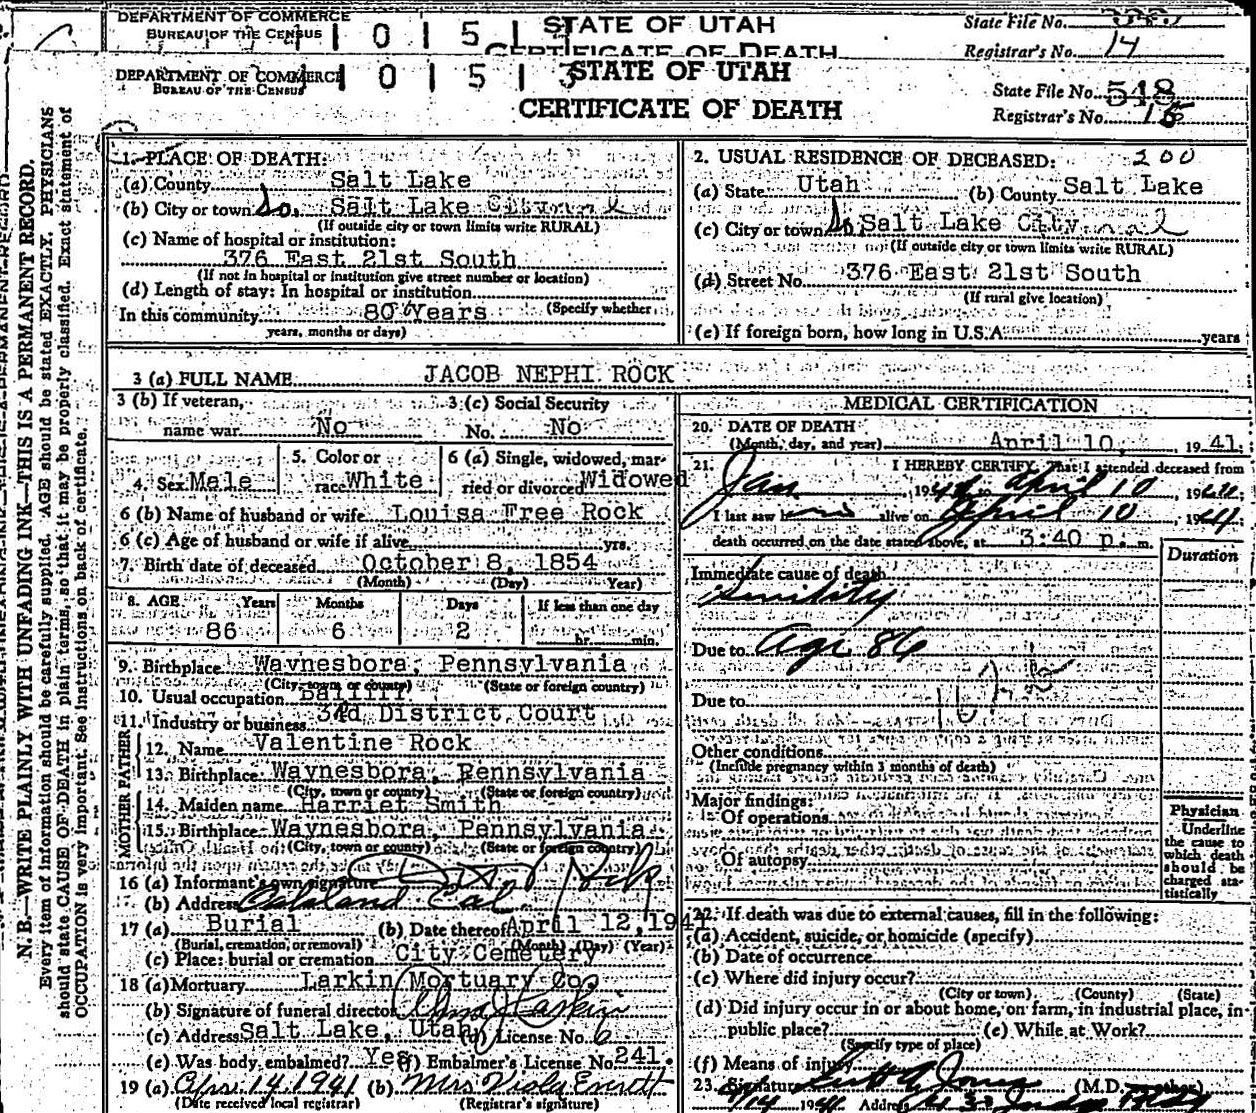 DEPARTMENT OF COMMERCE
BUREAU OF THE CENSUS
1 0 1 5 1
STATE OF UTAH
CERTIFICATE OF DEATH
State File No.
Registrar's No. 14
DEPARTMENT OF COMMERCE
BUREAU OF THE CENSUS
1 0 1 5 1 3
STATE OF UTAH
CERTIFICATE OF DEATH
State File No. 548
Registrar's No. 15
N. B.—WRITE PLAINLY WITH UNFADING INK—THIS IS A PERMANENT RECORD.
Every item of information should be carefully supplied. AGE should be stated EXACTLY. PHYSICIANS
should state CAUSE OF DEATH in plain terms, so that it may be properly classified. Exact statement of
OCCUPATION is very important. See instructions on back of certificate.
1. PLACE OF DEATH:
(a) County Salt Lake
(b) City or town So. Salt Lake City
(If outside city or town limits write RURAL)
(c) Name of hospital or institution:
376 East 21st South
(If not in hospital or institution give street number or location)
(d) Length of stay: In hospital or institution
In this community 80 Years (Specify whether
years, months or days)
2. USUAL RESIDENCE OF DECEASED: 200
(a) State Utah (b) County Salt Lake
(c) City or town So Salt Lake City
(If outside city or town limits write RURAL)
(d) Street No. 376 East 21st South
(If rural give location)
(e) If foreign born, how long in U.S.A. years
3 (a) FULL NAME JACOB NEPHI ROCK
3 (b) If veteran,
name war. No
3 (c) Social Security
No. No
4. Sex Male
5. Color or
race White
6 (a) Single, widowed, mar-
ried or divorced Widowed
6 (b) Name of husband or wife Louisa Free Rock
6 (c) Age of husband or wife if alive yrs.
7. Birth date of deceased October 8, 1854
(Month) (Day) Year)
8. AGE Years Months Days If less than one day
86 6 2 hr. min.
9. Birthplace Waynesbora, Pennsylvania
(City, town or county) (State or foreign country)
10. Usual occupation Bailiff
11. Industry or business 3rd District Court
FATHER
12. Name Valentine Rock
13. Birthplace Waynesbora, Pennsylvania
(City, town or county) (State or foreign country)
MOTHER
14. Maiden name Harriet Smith
15. Birthplace Waynesbora, Pennsylvania
(City, town or county) (State or foreign country)
16 (a) Informant's own signature Rock
(b) Address Oakland Cal
17 (a) Burial (b) Date thereof April 12, 1941
(Burial, cremation, or removal) (Month) (Day) (Year)
(c) Place: burial or cremation City Cemetery
18 (a) Mortuary Larkin Mortuary Co.
(b) Signature of funeral director Larkin
(c) Address Salt Lake, Utah (d) License No. 6
(e) Was body embalmed? Yes (f) Embalmer's License No. 241.
19 (a) Apr. 14, 1941 (b) Mrs Viola Everett
(Date received local registrar) (Registrar's signature)
MEDICAL CERTIFICATION
20. DATE OF DEATH
(Month, day, and year) April 10, 1941.
21. I HEREBY CERTIFY, That I attended deceased from
Jan, 1941 to April 10, 1941.
I last saw him alive on April 10, 1941
death occurred on the date stated above, at 3:40 p. m.
Duration
Immediate cause of death
Senility
Due to Age 86
Due to
Other conditions
(Include pregnancy within 3 months of death)
Major findings:
Of operations
Of autopsy
Physician
Underline
the cause to
which death
should be
charged sta-
tistically
22. If death was due to external causes, fill in the following:
(a) Accident, suicide, or homicide (specify)
(b) Date of occurrence
(c) Where did injury occur?
(City or town) (County) (State)
(d) Did injury occur in or about home, on farm, in industrial place, in
public place? (e) While at Work?
(Specify type of place)
(f) Means of injury
23. Signature Jones (M.D. or other)
4/14 1941 Address Judge Bldg